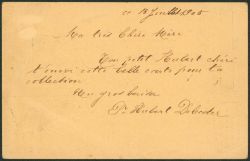 15 Juillet 1905
Ma très Chère Mère
Ton petit Hubert chéri
t'envoi cette belle carte pour ta
collection.
Un gros baiser
Hubert